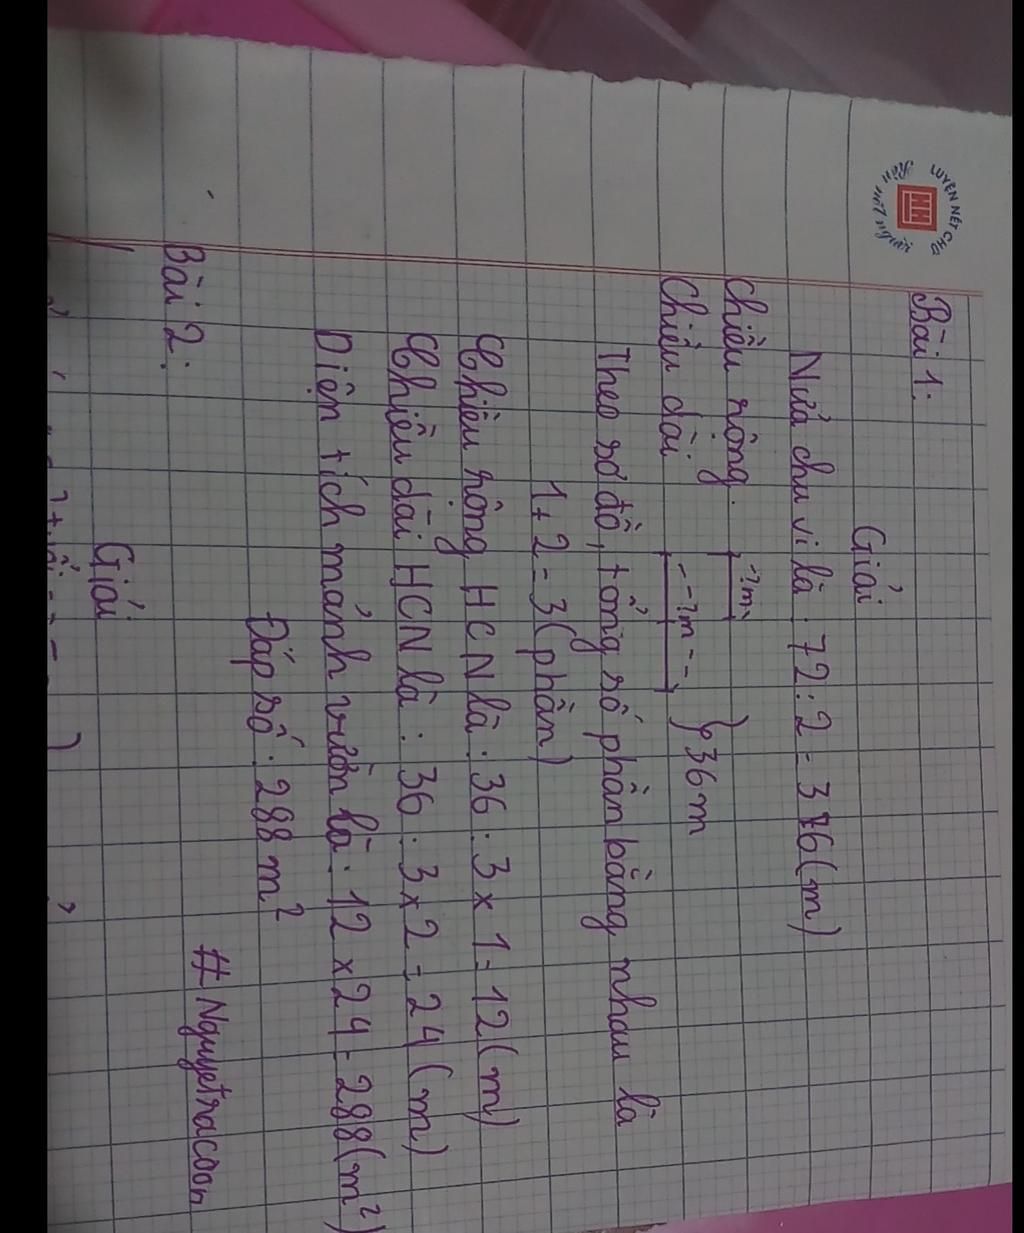 LUYỆN NÉT CHỮ
Rèn nết người
HH
Bài 1:
Giải
Nửa chu vi là : 72 : 2 = 36 (m)
Chiều rộng: ?m
Chiều dài: ?m } 36 m
Theo sơ đồ, tổng số phần bằng nhau là
1 + 2 = 3 (phần)
Chiều rộng HCN là : 36 : 3 x 1 = 12 (m)
Chiều dài HCN là : 36 : 3 x 2 = 24 (m)
Diện tích mảnh vườn là : 12 x 24 = 288 (m²)
Đáp số : 288 m²
#Nguyetracoon
Bài 2:
Giải